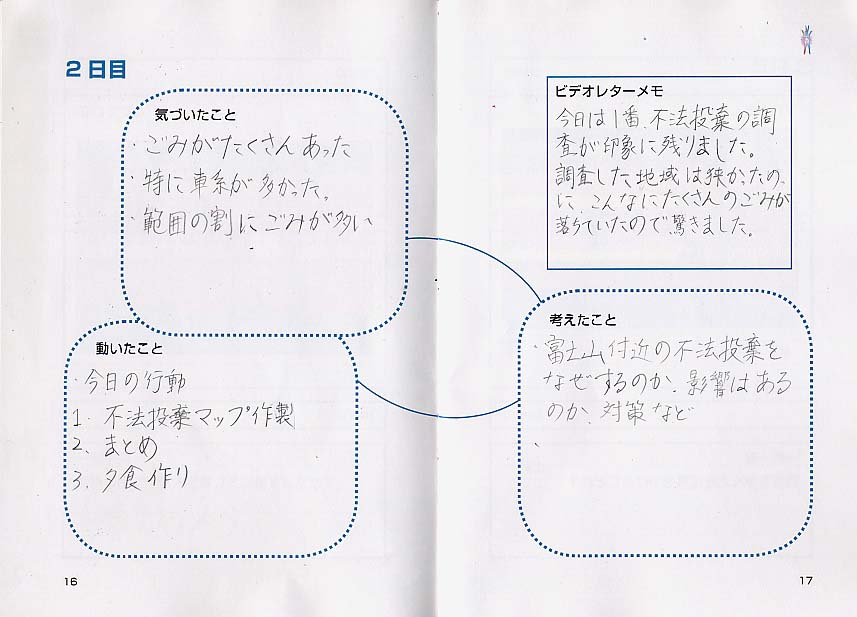 2日目
気づいたこと
・ごみがたくさんあった
・特に車系が多かった。
・範囲の割にごみが多い
動いたこと
・今日の行動
1. 不法投棄マップ作製
2. まとめ
3. 夕食作り
16
ビデオレターメモ
今日は1番、不法投棄の調
査が印象に残りました。
調査した地域は狭かったの
に、こんなにたくさんのごみが
落ちていたので驚きました。
考えたこと
・富士山付近の不法投棄を
なぜするのか、影響はある
のか、対策など
17